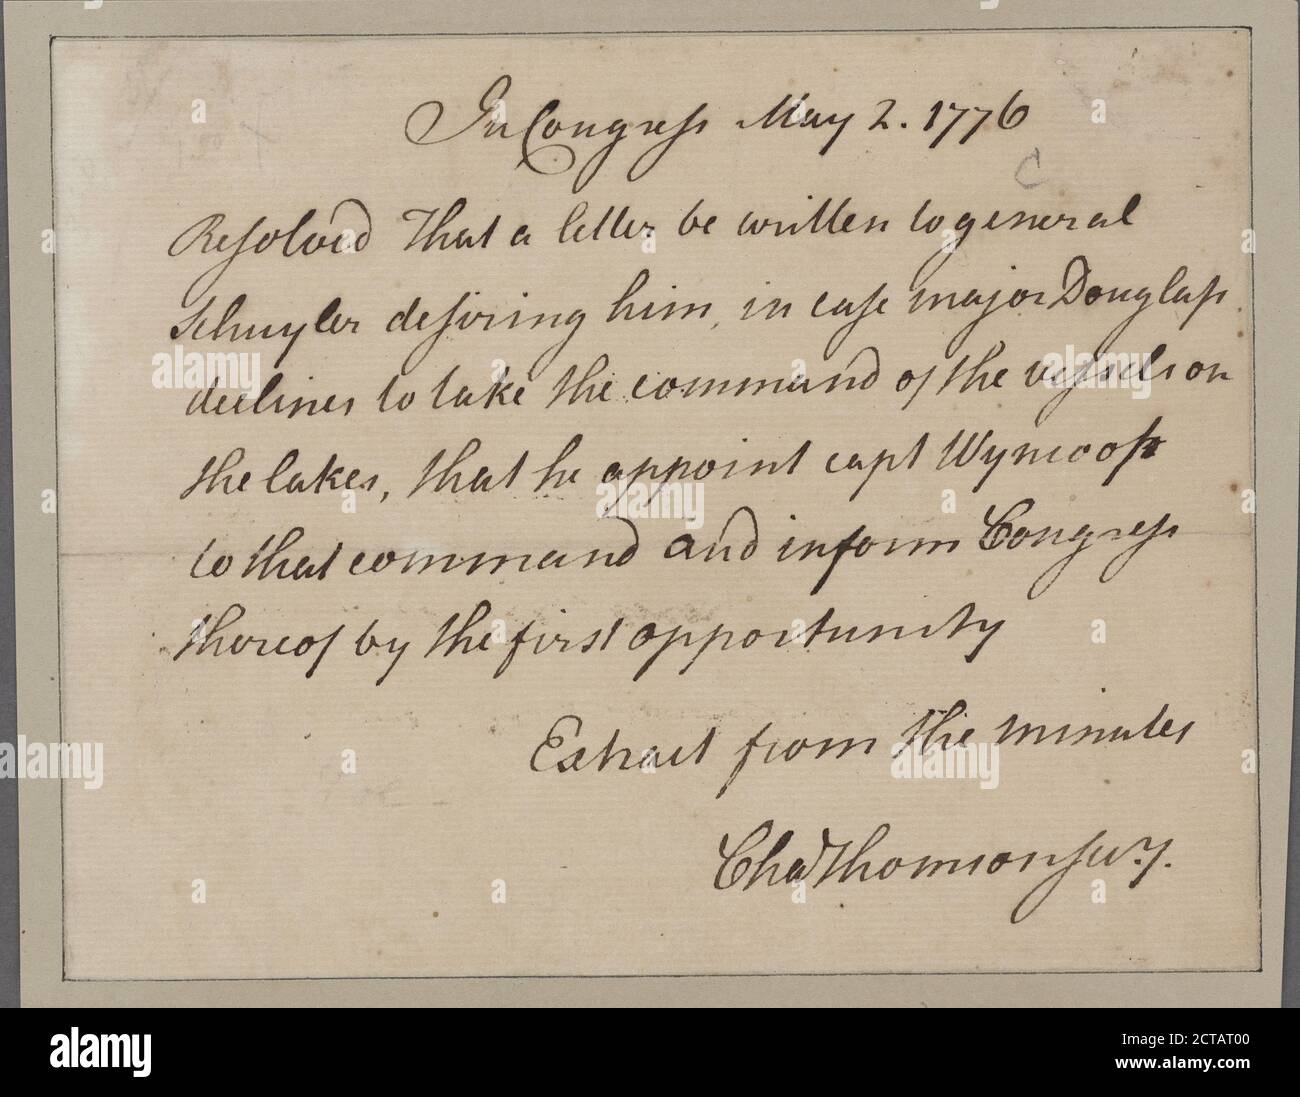 In Congress May 2. 1776
Resolved That a letter be written to general
Schuyler desiring him, in case major Douglass
declines to take the command of the vessels on
the lakes, that he appoint capt Wyncoop
to that command and inform Congress
thereof by the first opportunity
Extract from the minutes
Chas Thomson secy.
alamy
Image ID: 2CTAT00
www.alamy.com